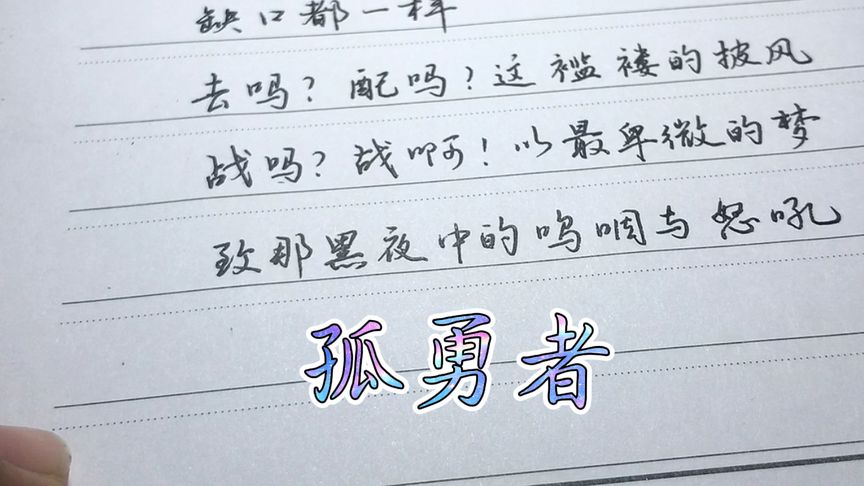 缺口都一样
去吗？配吗？这褴褛的披风
战吗？战啊！以最卑微的梦
致那黑夜中的呜咽与怒吼
孤勇者